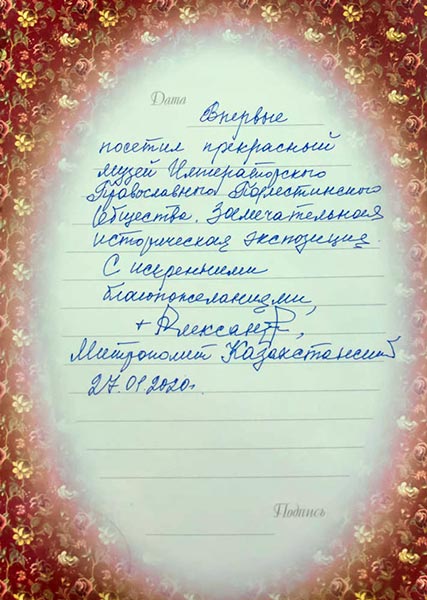 Дата Впервые
посетил прекрасный
музей Императорского
Православного Палестинского
Общества. Замечательная
историческая экспозиция.
С искренними
благопожеланиями,
+ Александр,
Митрополит Казахстанский
27.01.2020г.
Подпись